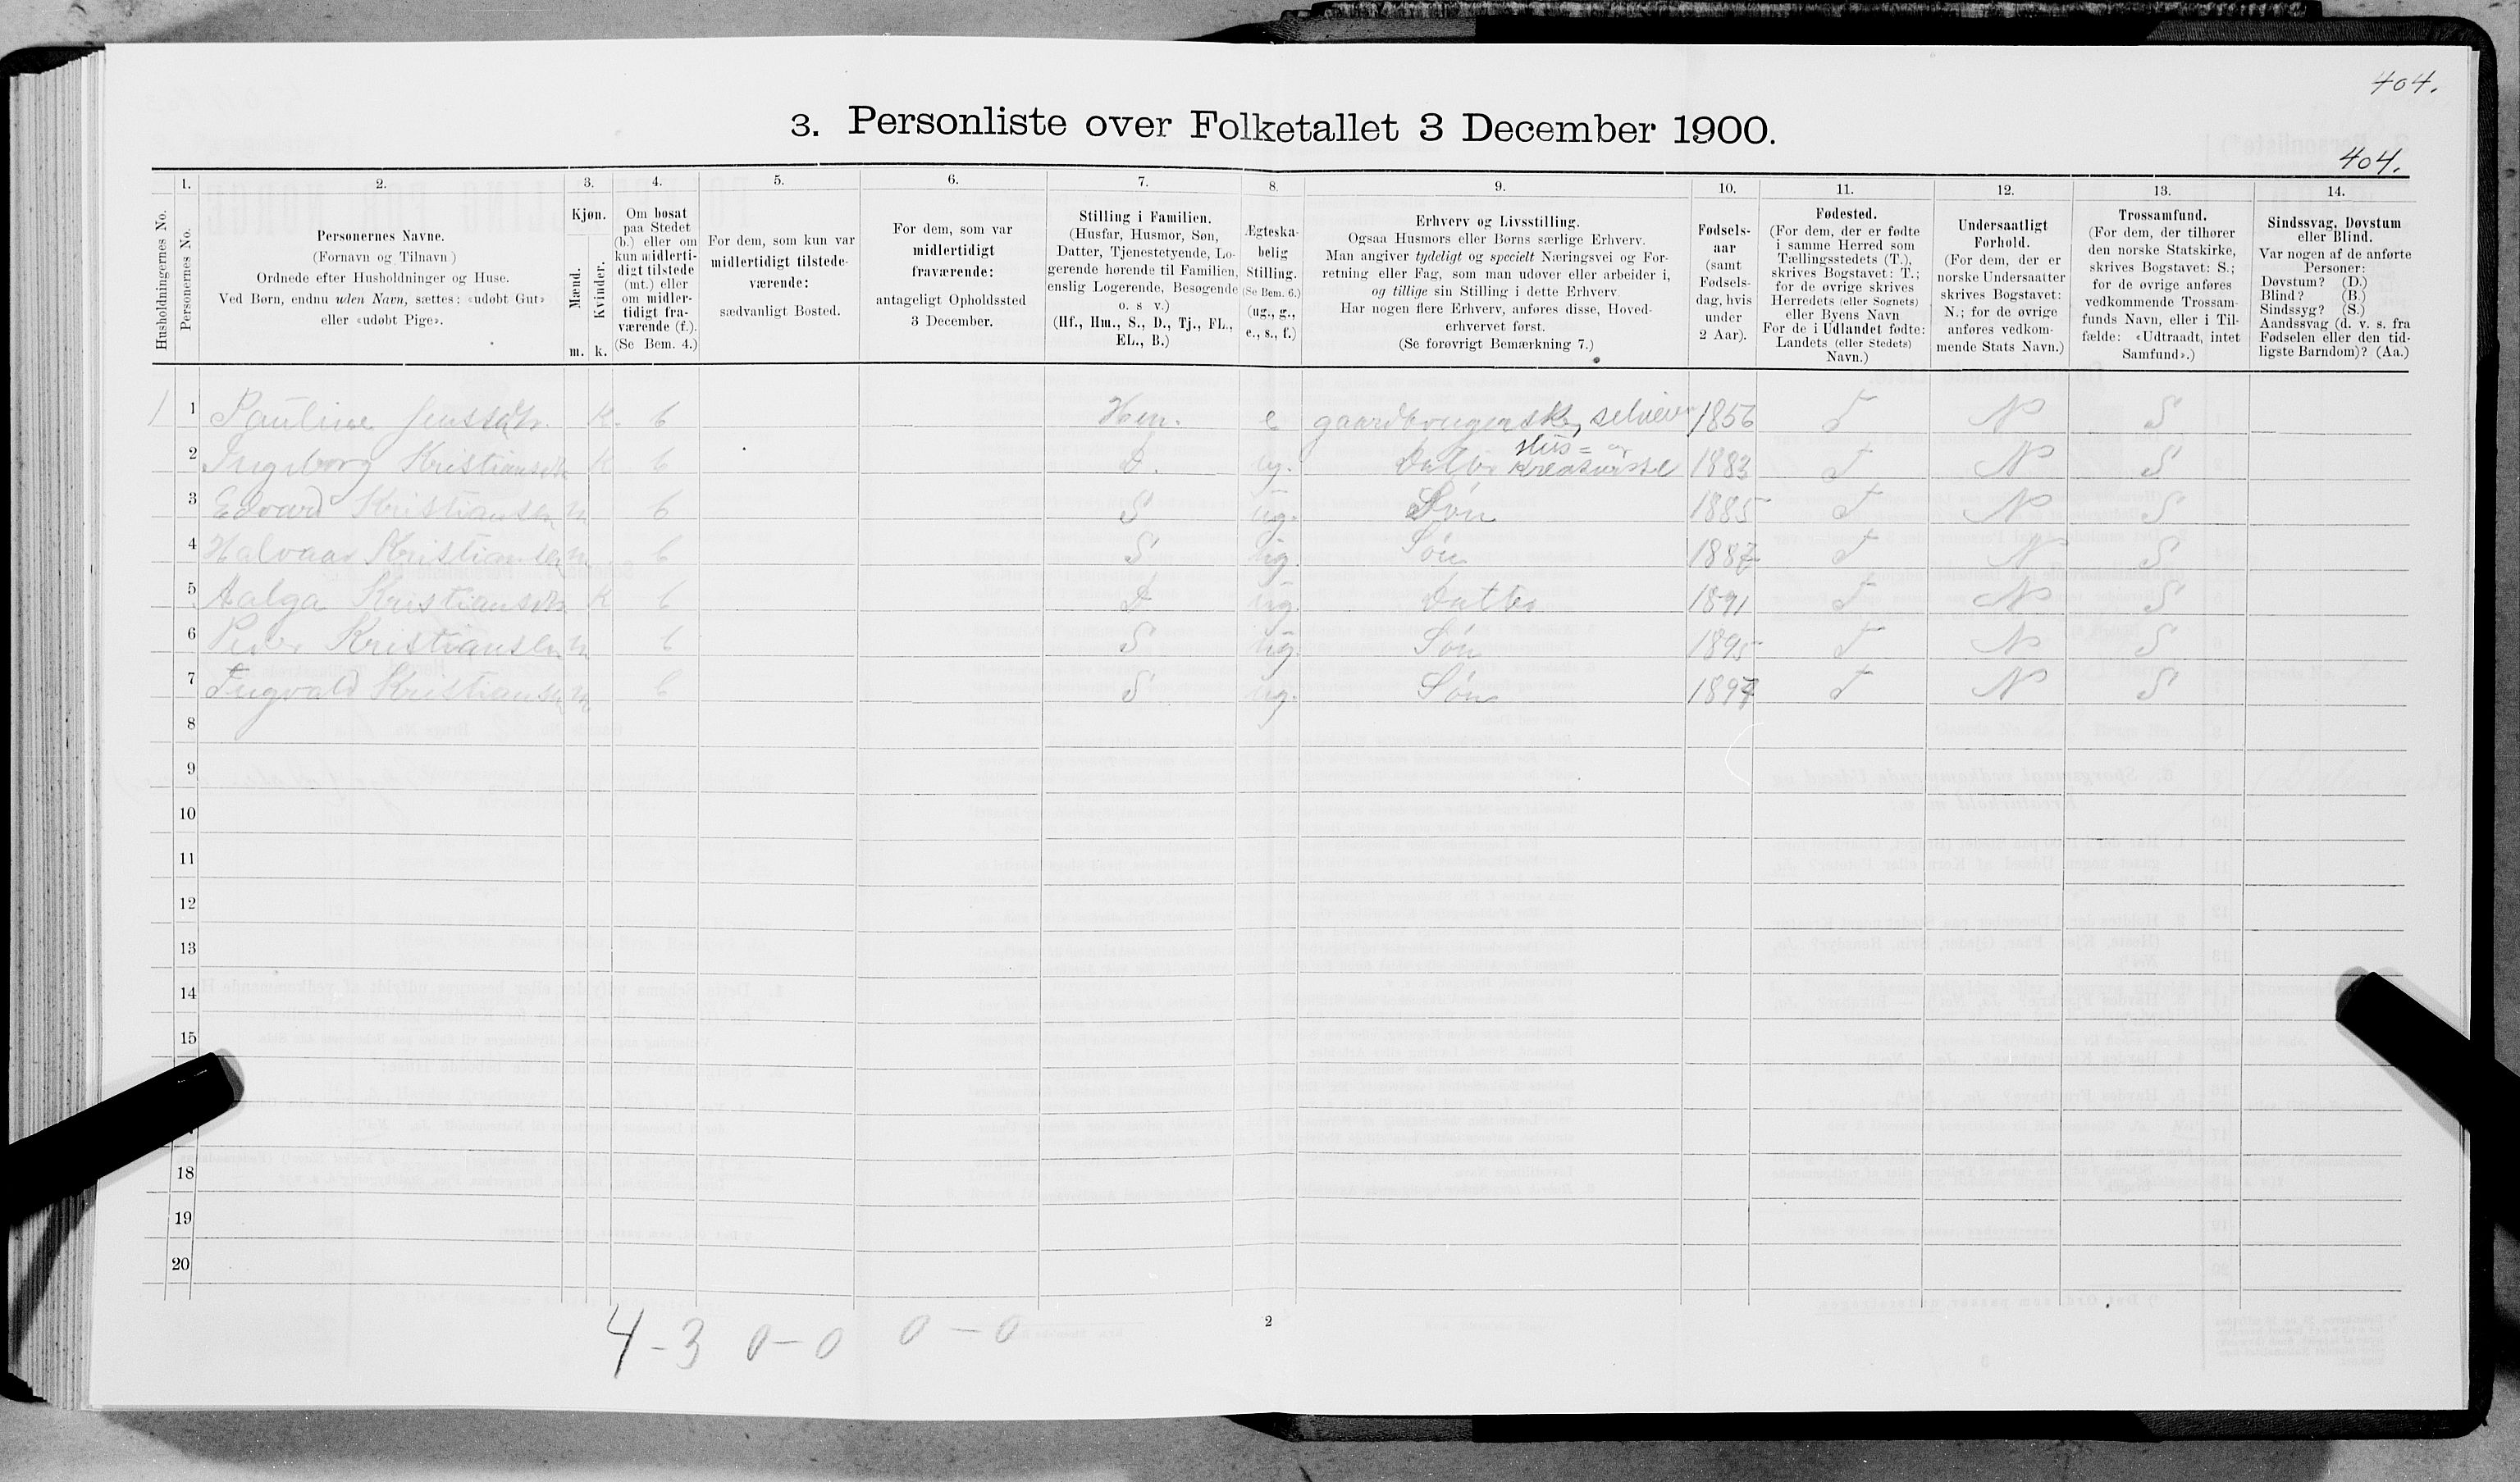 404.
3. Personliste over Folketallet 3 December 1900.
404.
Husholdningernes No.
1.
Personernes No.
2.
Personernes Navne.
(Fornavn og Tilnavn)
Ordnede efter Husholdninger og Huse.
Ved Børn, endnu uden Navn, sættes: «udøbt Gut»
eller «udøbt Pige».
3.
Kjøn.
Mænd.
Kvinder.
m. k.
4.
Om bosat
paa Stedet
(b.) eller om
kun midlerti-
digt tilstede
(mt.) eller
om midler-
tidigt fra-
værende (f.).
(Se Bem. 4.)
5.
For dem, som kun var
midlertidigt tilstede-
værende:
sædvanligt Bosted.
6.
For dem, som var
midlertidigt
fraværende:
antageligt Opholdssted
3 December.
7.
Stilling i Familien.
(Husfar, Husmor, Søn,
Datter, Tjenestetyende, Lo-
gerende hørende til Familien,
enslig Logerende, Besøgende
o. s v.)
(Hf., Hm., S., D., Tj., FL.,
EL., B.)
8.
Ægteska-
belig
Stilling.
(Se Bem. 6.)
(ug., g.,
e., s., f.)
9.
Erhverv og Livsstilling.
Ogsaa Husmors eller Børns særlige Erhverv.
Man angiver tydeligt og specielt Næringsvei og For-
retning eller Fag, som man udøver eller arbeider i,
og tillige sin Stilling i dette Erhverv.
Har nogen flere Erhverv, anføres disse, Hoved-
erhvervet først.
(Se forøvrigt Bemærkning 7.)
10.
Fødsels-
aar
(samt
Fødsels-
dag, hvis
under
2 Aar).
11.
Fødested.
(For dem, der er fødte
i samme Herred som
Tællingsstedets (T.),
skrives Bogstavet: T.;
for de øvrige skrives
Herredets (eller Sognets)
eller Byens Navn
For de i Udlandet fødte:
Landets (eller Stedets)
Navn.)
12.
Undersaatligt
Forhold.
(For dem, der er
norske Undersaatter
skrives Bogstavet:
N.; for de øvrige
anføres vedkom-
mende Stats Navn.)
13.
Trossamfund.
(For dem, der tilhører
den norske Statskirke,
skrives Bogstavet: S.;
for de øvrige anføres
vedkommende Trossam-
funds Navn, eller i Til-
fælde: «Udtraadt, intet
Samfund».)
14.
Sindssvag, Døvstum
eller Blind.
Var nogen af de anførte
Personer:
Døvstum? (D.)
Blind? (B.)
Sindssyg? (S.)
Aandssvag (d. v. s. fra
Fødselen eller den tid-
ligste Barndom)? (Aa.)
1 1 Pauline Jensdtr. K. b Hm. e gaardbrugerske, selveier 1856 T N S
Hus- og
2 Ingeborg Kristiansdtr K b D. ug. Datter Kreaturstel 1883 T N S
3 Edvard Kristiansen m b S ug. Søn 1885 T N S
4 Halvaar Kristiansen m. b S ug. Søn 1887 T N S
5 Aalga Kristiansdtr K b D ug. Datter 1891 T N S
6 Peder Kristiansen m b S ug. Søn 1895 T N S
7 Ingvald Kristiansen m b S ug. Søn 1897 T N S
8
9
10
11
12
13
14
15
18
19
20
4-3 0-0 0-0
2